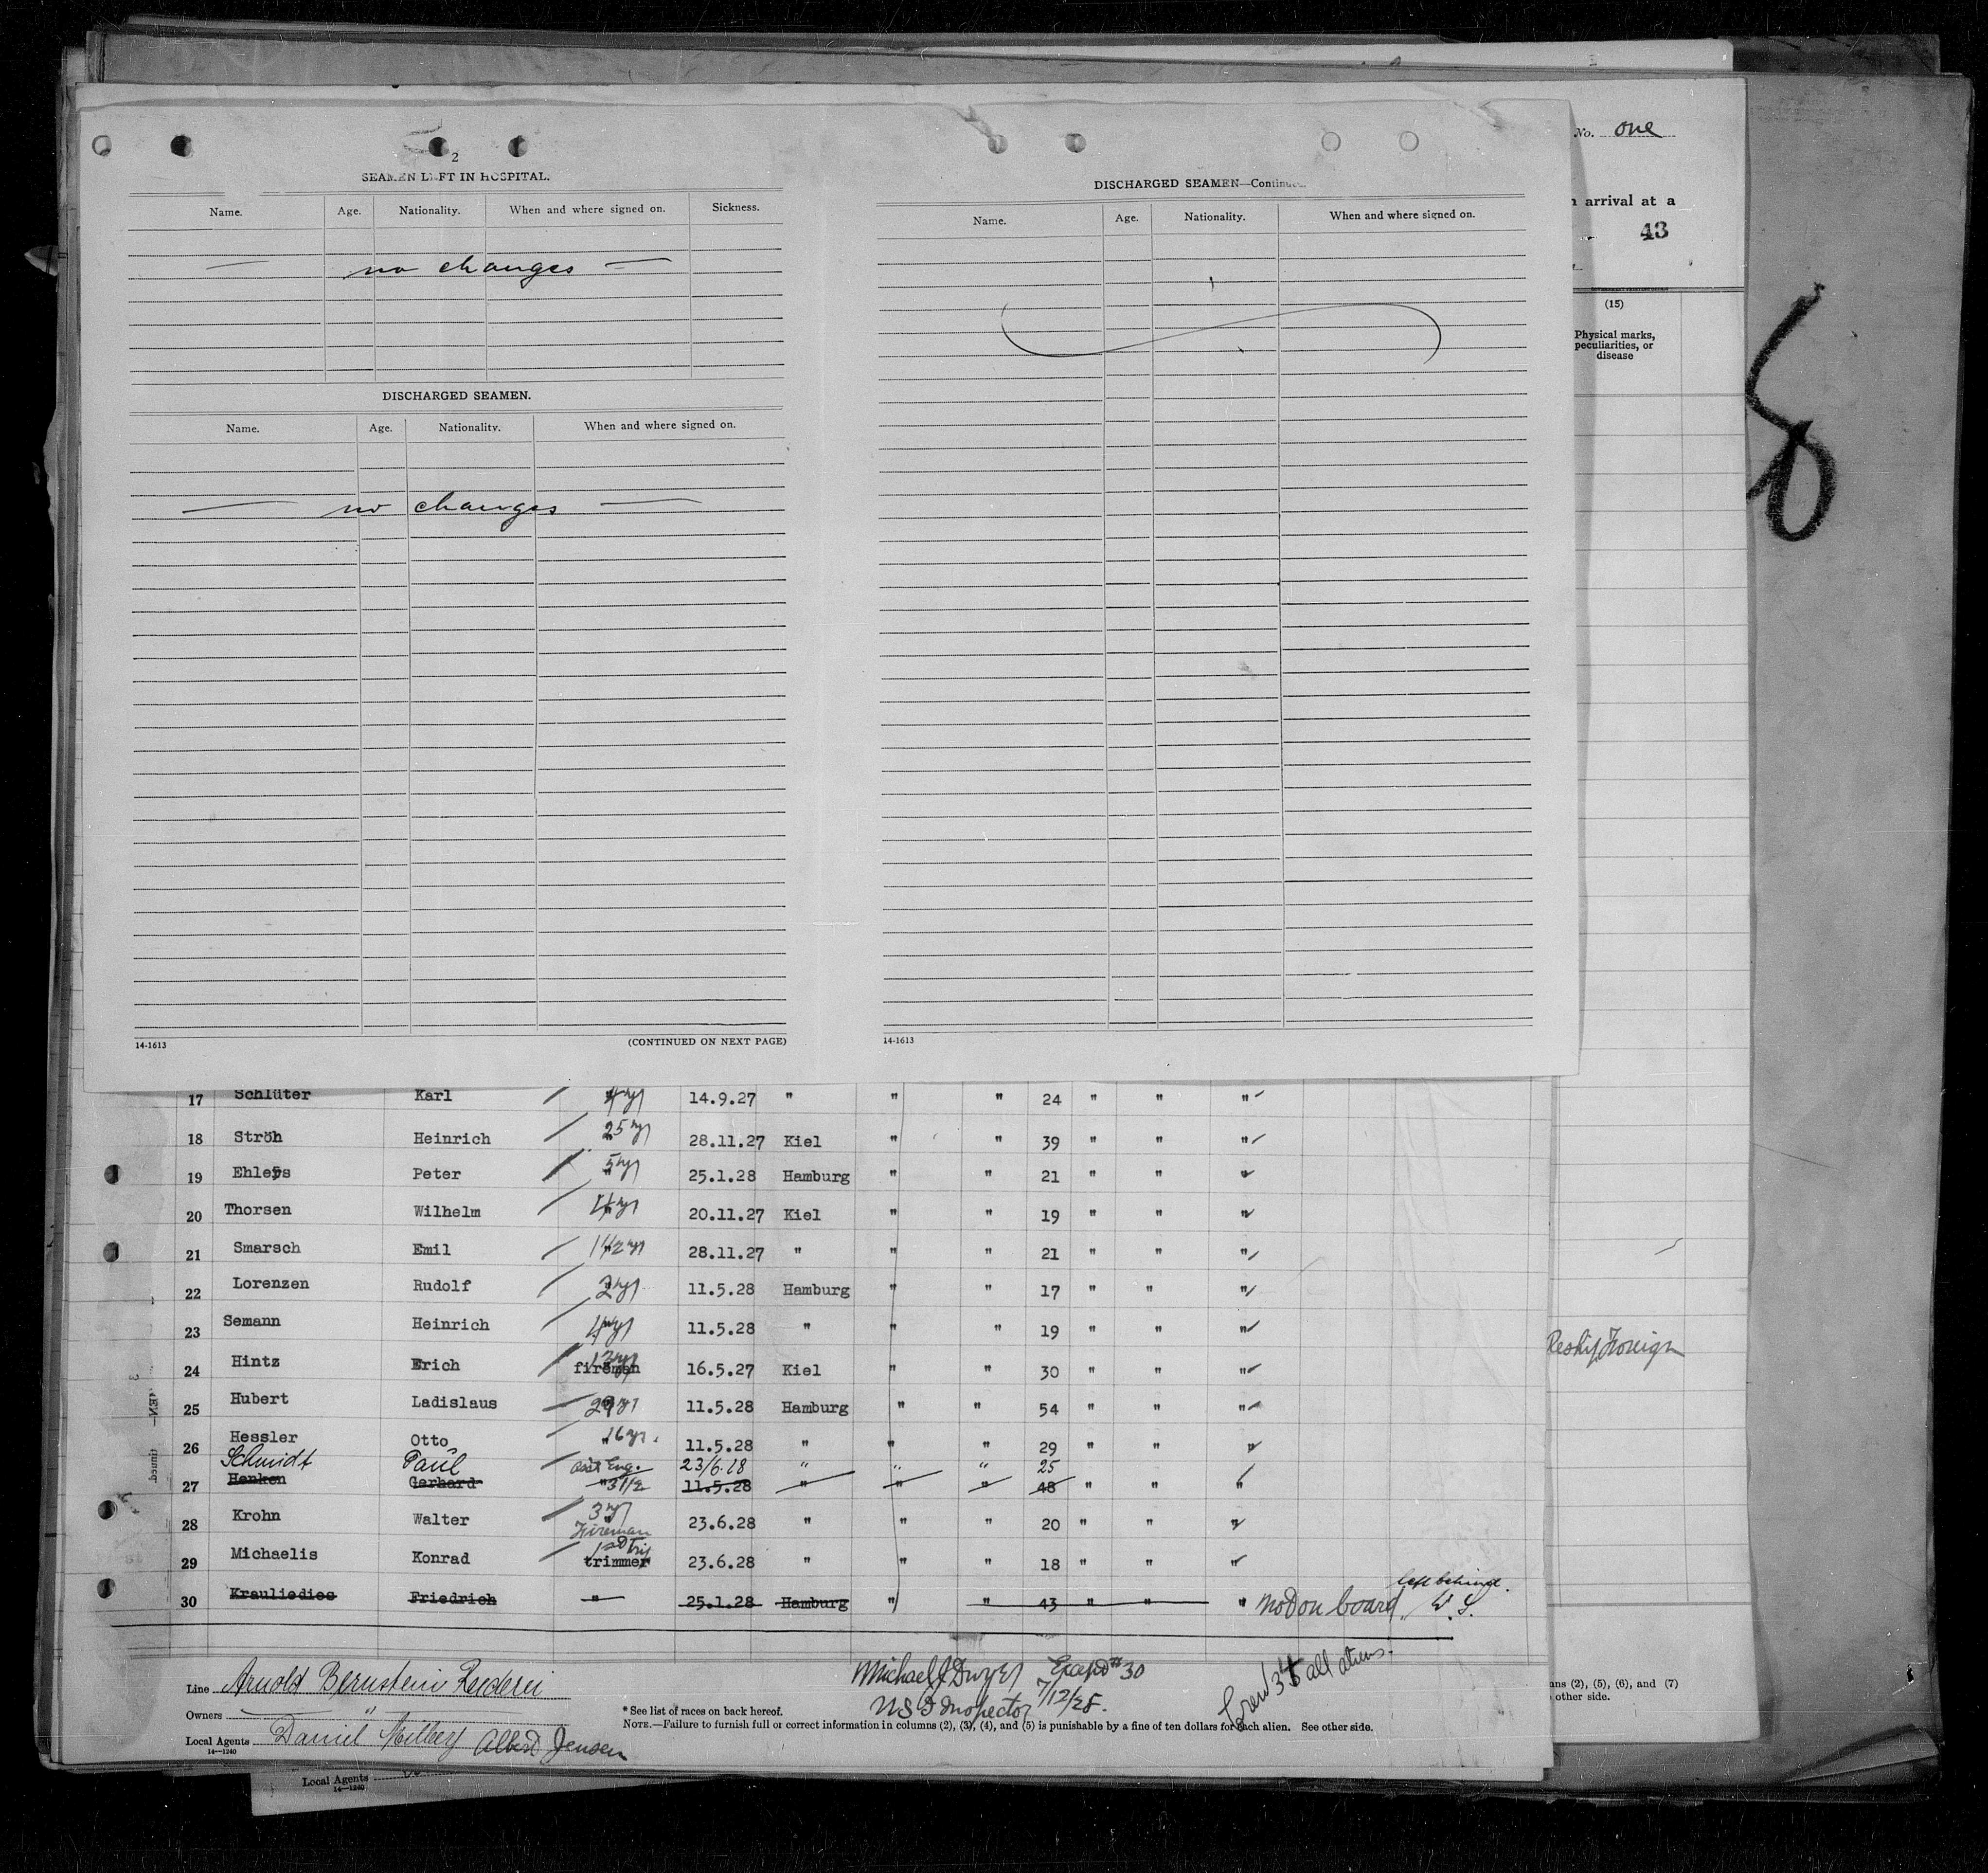 No. one
n arrival at a
43
(15)
Physical marks,
peculiarities, or
disease
2
SEAMEN LEFT IN HOSPITAL.
Name. Age. Nationality. When and where signed on. Sickness.
— no changes —
DISCHARGED SEAMEN.
Name. Age. Nationality. When and where signed on.
— no changes —
14-1613 (CONTINUED ON NEXT PAGE)
DISCHARGED SEAMEN—Continued
Name. Age. Nationality. When and where signed on.
14-1613
17 Schlüter Karl 4 yrs 14.9.27 " " " 24 " " "
18 Ströh Heinrich 25 yrs 28.11.27 Kiel " " 39 " " "
19 Ehlers Peter 5 yrs 25.1.28 Hamburg " " 21 " " "
20 Thorsen Wilhelm 4 yrs 20.11.27 Kiel " " 19 " " "
21 Smarsch Emil 1 1/2 yrs 28.11.27 " " " 21 " " "
22 Lorenzen Rudolf 2 yrs 11.5.28 Hamburg " " 17 " " "
23 Semann Heinrich 4 yrs 11.5.28 " " " 19 " " "
24 Hintz Erich fireman 16.5.27 Kiel " " 30 " " "
25 Hubert Ladislaus 29 yrs 11.5.28 Hamburg " " 54 " " "
26 Hessler Otto " 16 yrs. 11.5.28 " " " 29 " " "
Schmidt Paul asst Eng. 23/6.28 " " " 25
27 Henken Gerhard " 31/2 11.5.28 " " " 48 " " "
28 Krohn Walter 3 yrs 23.6.28 " " " 20 " " "
Fireman
29 Michaelis Konrad trimmer 1st Trip 23.6.28 " " " 18 " " "
30 Krauliedies Friedrich " 25.1.28 Hamburg " " 43 " " " not on board left behind. W. S.
Reship Foreign
Line Arnold Bernstein Reederei
Owners "
Local Agents Daniel Albert Jensen
14—1240
Michael J Dwyer
US I Inspector
#30
7/12/28.
Crew 34 all aliens.
* See list of races on back hereof.
NOTE.—Failure to furnish full or correct information in columns (2), (3), (4), and (5) is punishable by a fine of ten dollars for each alien. See other side.
ns (2), (5), (6), and (7)
other side.
Local Agents
14—1240